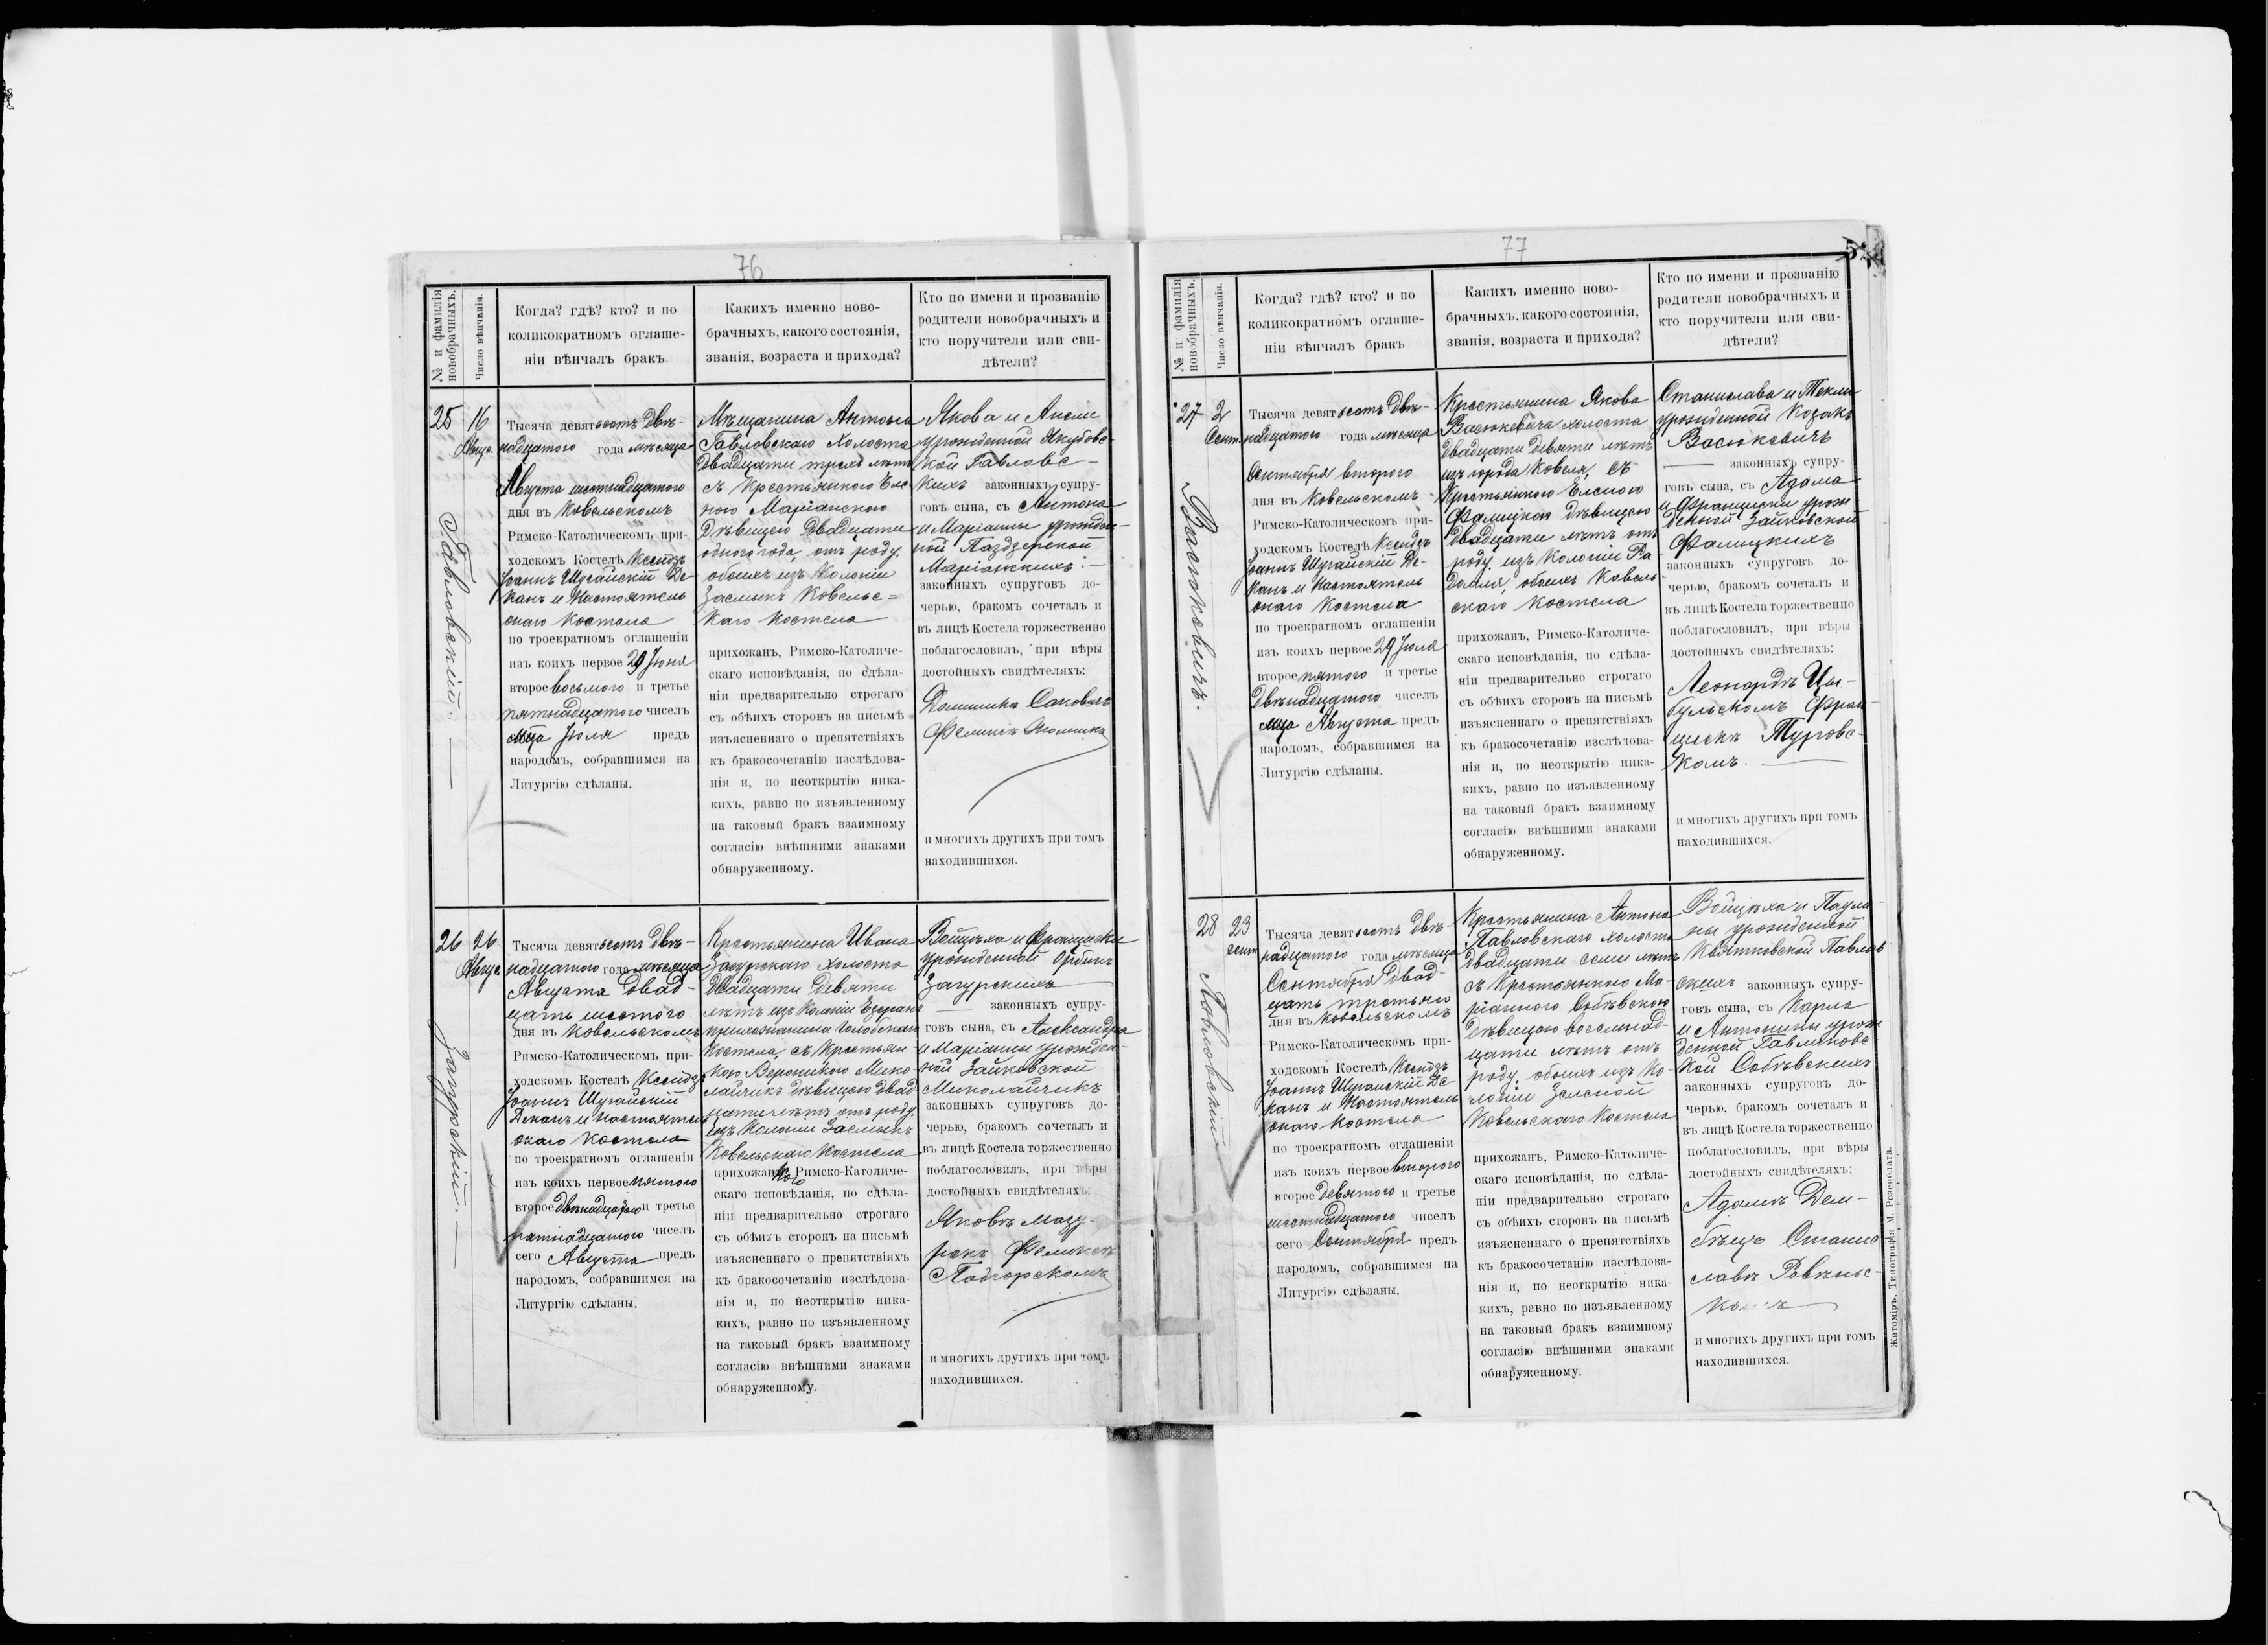 76
№ и фамилія новобрачныхъ.
Число вѣнчанія.
Когда? гдѣ? кто? и по
коликократномъ оглаше-
ніи вѣнчалъ бракъ.
Какихъ именно ново-
брачныхъ, какого состоянія,
званія, возраста и прихода?
Кто по имени и прозванію
родители новобрачныхъ и
кто поручители или сви-
дѣтели?
25
16
Авгус.
Гавловскій.
Тысяча девятьсотъ двѣ-
надцатого года мѣсяца
Августа шестнадцатого
дня въ Ковельскомъ
Римско-Католическомъ при-
ходскомъ Костелѣ Ксендзъ
Іоаннъ Шугайскій Де-
канъ и Настоятель
онаго Костела
по троекратномъ оглашеніи
изъ коихъ первое 29 Іюня
второе восьмого и третье
пятнадцатого чиселъ
мца Іюля предъ
народомъ, собравшимся на
Литургію сдѣланы.
Мѣщанина Антона
Гавловскаго холоста
двадцати трехъ лѣтъ
съ Крестьянкою Еле-
ною Маріанскою
дѣвицею двадцати
одного года отъ роду,
обоихъ изъ Колоніи
Засмыкъ Ковельс=
каго Костела
прихожанъ, Римско-Католиче-
скаго исповѣданія, по сдѣла-
ніи предварительно строгаго
съ обѣихъ сторонъ на письмѣ
изъясненнаго о препятствіяхъ
къ бракосочетанію изслѣдова-
нія и, по неоткрытію ника-
кихъ, равно по изъявленному
на таковый бракъ взаимному
согласію внѣшними знаками
обнаруженному.
Якова и Анели
урожденной Якубовс-
кой Гавловс-
кихъ законныхъ супру-
говъ сына, съ Антона
и Маріанны урожден-
ной Паздзерской
Маріанскихъ.
законныхъ супруговъ до-
черью, бракомъ сочеталъ и
въ лицѣ Костела торжественно
поблагословилъ, при вѣры
достойныхъ свидѣтеляхъ:
Доминикъ Саковичъ
Феликсъ
и многихъ другихъ при томъ
находившихся.
26
26
Авгус.
Загурскій.
Тысяча девятьсотъ двѣ-
надцатого года мѣсяца
Августа двад-
цать шестого
дня въ Ковельскомъ
Римско-Католическомъ при-
ходскомъ Костелѣ Ксендзъ
Іоаннъ Шугайскій
Деканъ и Настоятель
онаго Костела
по троекратномъ оглашеніи
изъ коихъ первое пятого
второе двѣнадцатого и третье
пятнадцатого чиселъ
сего Августа предъ
народомъ, собравшимся на
Литургію сдѣланы.
Крестьянина Ивана
Загурскаго холоста
двадцати девяти
лѣтъ изъ Колоніи
прихожанина
Костела, съ Крестьян-
кою Вероникою Мико-
лайчикъ дѣвицею двад-
цати лѣтъ отъ роду,
изъ Колоніи Засмыкъ
Ковельскаго Костела
прихожанкою Римско-Католиче-
скаго исповѣданія, по сдѣла-
ніи предварительно строгаго
съ обѣихъ сторонъ на письмѣ
изъясненнаго о препятствіяхъ
къ бракосочетанію изслѣдова-
нія и, по неоткрытію ника-
кихъ, равно по изъявленному
на таковый бракъ взаимному
согласію внѣшними знаками
обнаруженному.
Войцѣха и Францишки
урожденной
Загурскихъ
законныхъ супру-
говъ сына, съ Александра
и Маріанны урожден-
ной Зайковской
Миколайчикъ
законныхъ супруговъ до-
черью, бракомъ сочеталъ и
въ лицѣ Костела торжественно
поблагословилъ, при вѣры
достойныхъ свидѣтеляхъ:
Яковъ Мазу-
рекъ Феликсъ
Подгорскомъ
и многихъ другихъ при томъ
находившихся.
77
№ и фамилія новобрачныхъ.
Число вѣнчанія.
Когда? гдѣ? кто? и по
коликократномъ оглаше-
ніи вѣнчалъ бракъ
Какихъ именно ново-
брачныхъ, какого состоянія,
званія, возраста и прихода?
Кто по имени и прозванію
родители новобрачныхъ и
кто поручители или сви-
дѣтели?
27
2
Сент.
Васюковичъ.
Тысяча девятьсотъ двѣ-
надцатого года мѣсяца
Сентября второго
дня въ Ковельскомъ
Римско-Католическомъ при-
ходскомъ Костелѣ Ксендзъ
Іоаннъ Шугайскій Де-
канъ и Настоятель
онаго Костела
по троекратномъ оглашеніи
изъ коихъ первое 29 Іюля
второе пятого и третье
двѣнадцатого чиселъ
мца Августа предъ
народомъ, собравшимся на
Литургію сдѣланы.
Крестьянина Якова
Васюкевича холоста
двадцати девяти лѣтъ
изъ города Ковеля, съ
Крестьянкою Еленою
Фалицкою дѣвицею
двадцати лѣтъ отъ
роду изъ Колоніи Ра-
домля, обоихъ Ковель-
скаго Костела
прихожанъ, Римско-Католиче-
скаго исповѣданія, по сдѣла-
ніи предварительно строгаго
съ обѣихъ сторонъ на письмѣ
изъясненнаго о препятствіяхъ
къ бракосочетанію изслѣдова-
нія и, по неоткрытію ника-
кихъ, равно по изъявленному
на таковый бракъ взаимному
согласію внѣшними знаками
обнаруженному.
Станислава и Текли
урожденной Козакъ
Васюкевичъ
законныхъ супру-
говъ сына, съ Адама
и Францишки урож-
денной Зайковской
Фалицкихъ
законныхъ супруговъ до-
черью, бракомъ сочеталъ и
въ лицѣ Костела торжественно
поблагословилъ, при вѣры
достойныхъ свидѣтеляхъ:
Леонардъ Цы-
бульскомъ Фран-
цискъ Туровс-
комъ.
и многихъ другихъ при томъ
находившихся.
28
23
сент
Павловскій
Тысяча девятьсотъ двѣ-
надцатого года мѣсяца
Сентября двад-
цать третьяго
дня въ Ковельскомъ
Римско-Католическомъ при-
ходскомъ Костелѣ Ксендзъ
Іоаннъ Шугайскій Де-
канъ и Настоятель
онаго Костела
по троекратномъ оглашеніи
изъ коихъ первое второго
второе девятого и третье
шестнадцатого чиселъ
сего Сентября предъ
народомъ, собравшимся на
Литургію сдѣланы.
Крестьянина Антона
Павловскаго холоста
двадцати семи лѣтъ
съ Крестьянкою Ма-
ріанною Собѣвскою
дѣвицею восемнад-
цати лѣтъ отъ
роду, обоихъ изъ Ко-
лоніи Зеленой
Ковельскаго Костела
прихожанъ, Римско-Католиче-
скаго исповѣданія, по сдѣла-
ніи предварительно строгаго
съ обѣихъ сторонъ на письмѣ
изъясненнаго о препятствіяхъ
къ бракосочетанію изслѣдова-
нія и, по неоткрытію ника-
кихъ, равно по изъявленному
на таковый бракъ взаимному
согласію внѣшними знаками
обнаруженному.
Войцѣха и Паули-
ны урожденной
Квятковской Павлов-
скихъ законныхъ супру-
говъ сына, съ Карла
и Антонины урож-
денной Гавликовс
кой Собѣвскихъ
законныхъ супруговъ до-
черью, бракомъ сочеталъ и
въ лицѣ Костела торжественно
поблагословилъ, при вѣры
достойныхъ свидѣтеляхъ:
Адамъ Дем-
бѣцъ Станис
лавъ Ровинс-
комъ
и многихъ другихъ при томъ
находившихся.
Житоміръ, Типографія М. Розенблата.